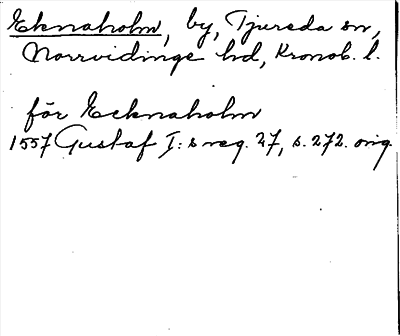 Eknaholm, by, Tjureda sn,
Norrvidinge hd, Kronob. l.
för Ecknaholm
1557 Gustaf I:s reg. 27, s. 272. orig.